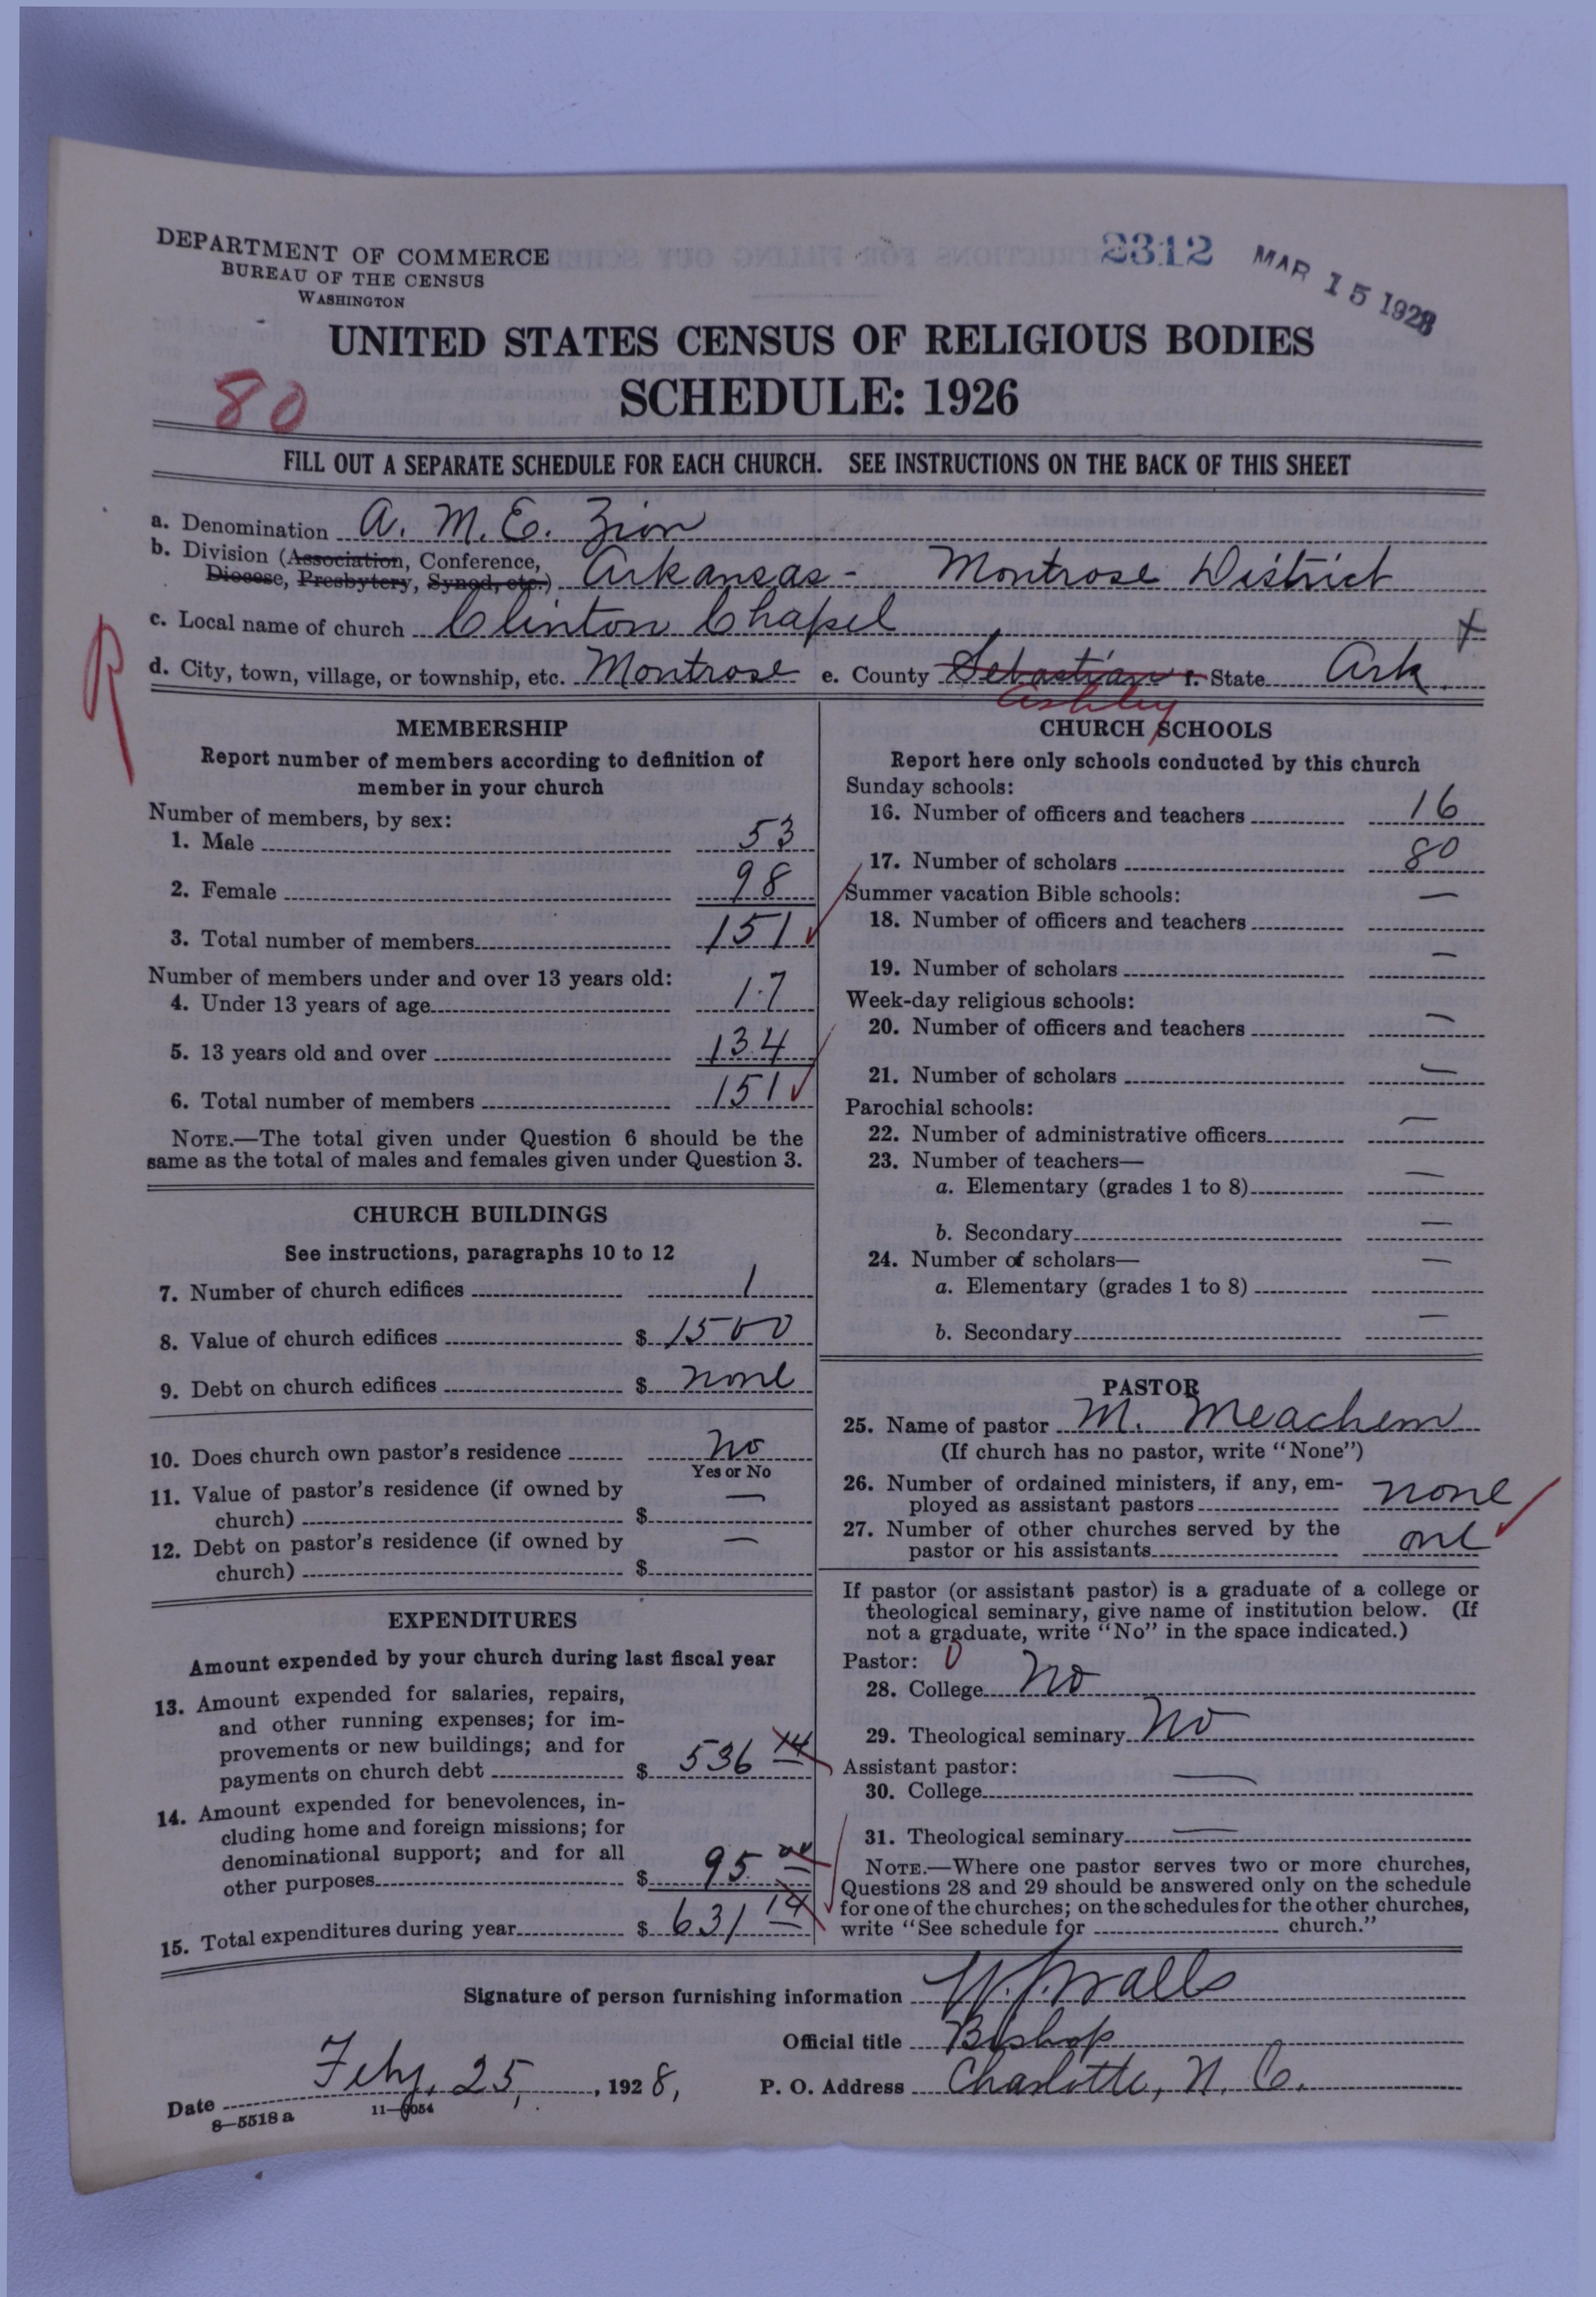 DEPARTMENT OF COMMERCE
BUREAU OF THE CENSUS
WASHINGTON
2312 MAR 15 1928
UNITED STATES CENSUS OF RELIGIOUS BODIES
80
SCHEDULE: 1926
FILL OUT A SEPARATE SCHEDULE FOR EACH CHURCH. SEE INSTRUCTIONS ON THE BACK OF THIS SHEET
a. Denomination A. M. E. Zion
b. Division (Association, Conference,
Diocese, Presbytery, Synod, etc.) Arkansas - Montrose District
c. Local name of church Clinton Chapel
R
d. City, town, village, or township, etc. Montrose e. County Sebastian f. State Ark.
Ashley
MEMBERSHIP
Report number of members according to definition of
member in your church
Number of members, by sex:
1. Male 53
2. Female 98
3. Total number of members 151
Number of members under and over 13 years old:
4. Under 13 years of age 17
5. 13 years old and over 134
6. Total number of members 151
NOTE.—The total given under Question 6 should be the
same as the total of males and females given under Question 3.
CHURCH BUILDINGS
See instructions, paragraphs 10 to 12
7. Number of church edifices 1
8. Value of church edifices $ 1500
9. Debt on church edifices $ none
10. Does church own pastor's residence no
Yes or No
11. Value of pastor's residence (if owned by
church) $ —
12. Debt on pastor's residence (if owned by
church) $ —
EXPENDITURES
Amount expended by your church during last fiscal year
13. Amount expended for salaries, repairs,
and other running expenses; for im-
provements or new buildings; and for
payments on church debt $ 536 14
14. Amount expended for benevolences, in-
cluding home and foreign missions; for
denominational support; and for all
other purposes $ 95. 00
15. Total expenditures during year $ 631 14
CHURCH SCHOOLS
Report here only schools conducted by this church
Sunday schools:
16. Number of officers and teachers 16
17. Number of scholars 80
Summer vacation Bible schools:
18. Number of officers and teachers —
19. Number of scholars —
Week-day religious schools:
20. Number of officers and teachers —
21. Number of scholars —
Parochial schools:
22. Number of administrative officers —
23. Number of teachers—
a. Elementary (grades 1 to 8) —
b. Secondary —
24. Number of scholars—
a. Elementary (grades 1 to 8) —
b. Secondary —
PASTOR
25. Name of pastor M. Meachem
(If church has no pastor, write "None")
26. Number of ordained ministers, if any, em-
ployed as assistant pastors none
27. Number of other churches served by the
pastor or his assistants one
If pastor (or assistant pastor) is a graduate of a college or
theological seminary, give name of institution below. (If
not a graduate, write "No" in the space indicated.)
Pastor: 0
28. College No
29. Theological seminary No
Assistant pastor:
30. College —
31. Theological seminary —
NOTE.—Where one pastor serves two or more churches,
Questions 28 and 29 should be answered only on the schedule
for one of the churches; on the schedules for the other churches,
write "See schedule for church."
Signature of person furnishing information W. J. Walls
Official title Bishop
Date Feby. 25, 1928, P. O. Address Charlotte, N. C.
8—5518 a 11—9054